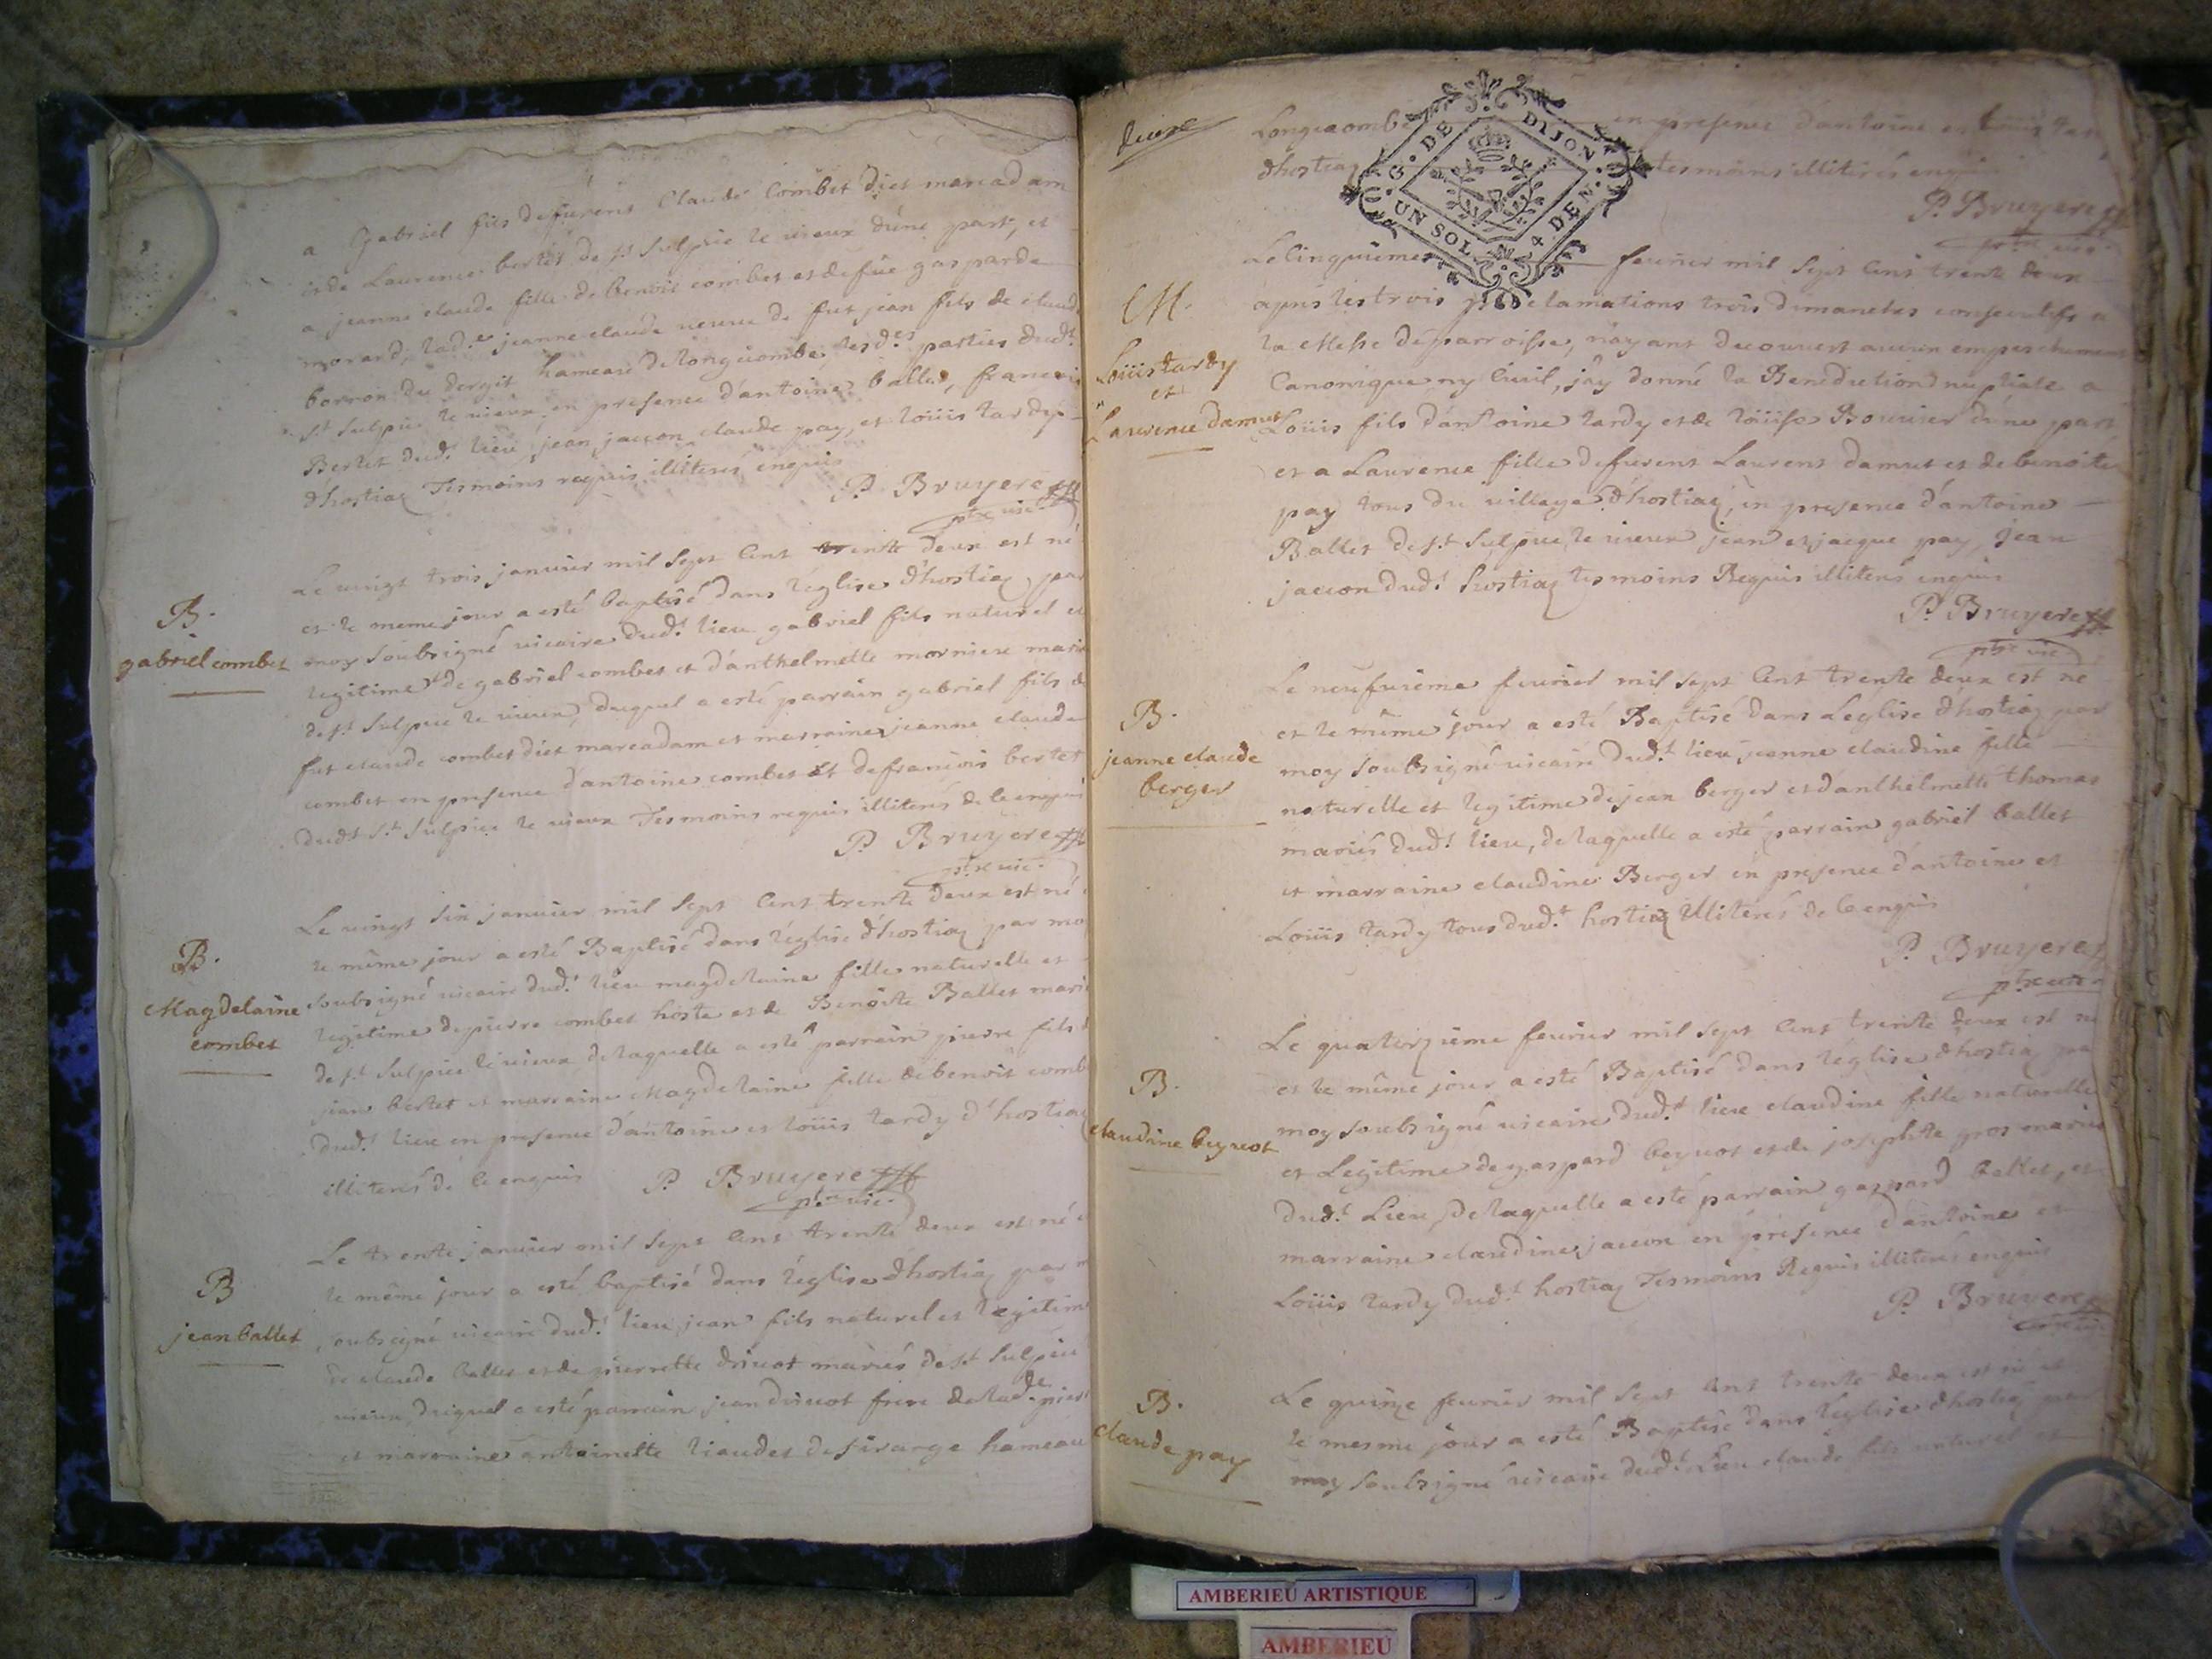 a Gabriel fils de furent Claude Combet dict marcadam
et de Laurence bertet de st Sulpice le vieux d'une part, et
a jeanne claude fille de benoit combet et de fue gasparde
morand, lad.e jeanne claude veuve de fut jean fils de claude
borron du hameau de longecombe, lesd.es parties dud.t
s.t Sulpice le vieux en presence d'antoine ballet, francois
Bertet dud.t lieu, jean jacon, claude pay, et loüis tardy
d'hostiaz Tesmoins requis illiterés enquis
P. Bruyere
ptre vic.
B.
gabriel combet
Le vingt trois janvier mil sept cent trente deux est né
et le meme jour a esté baptisé dans l'église d'hostiaz par
moy soubsigné vicaire dud.t lieu gabriel fils naturel et
legitime de gabriel combet et d'anthelmette morniere marié
de s.t Sulpice le vieux, duquel a esté parrain gabriel fils de
fut claude combet dict marcadam et marraine jeanne claude
combet en presence d'antoine combet et de francois bertet
dud.t s.t Sulpice le vieux Tesmoins requis illiterés de ce enquis
P. Bruyere
ptre vic.
B.
Magdelaine
combet
Le vingt six janvier mil sept cent trente deux est né
le même jour a esté Baptisé dans l'église d'hostiaz par mo
soubsigné vicaire dud.t lieu magdelaine fille naturelle et
legitime de pierre combet hoste et de Benoite Ballet marié
de s.t Sulpice le vieux de laquelle a esté parrain pierre fils d
jean bertet et marraine Magdelaine fille de benoit comb
dud.t lieu en presence d'antoine et loüis tardy d'hostiaz
illiterés de ce enquis P. Bruyere
ptre vic.
B
jean ballet
Le trente janvier mil sept cent trente deux est né e
le même jour a esté baptisé dans l'église d'hostiaz par m
soubsigné vicaire dud.t lieu jean fils naturel et legitime
de claude ballet et de pierrette drivot mariés de s.t Sulpice
vieux, duquel a esté parrain jean drivot frere de lad.e pier
et marraine antoinette liaudet de sirarge hameau
deuxe
Longecombe en presence d'antoine et loüis tar
d'hostiaz tesmoins illiterés enquis
P. Bruyere
ptre vic.
G. DE DIJON
UN SOL 4 DEN.
M.
Loüis tardy
et
Laurence damet
Le cinquieme fevrier mil sept cent trente deux
après les trois proclamations trois dimanches consecutifs a
la Messe de parroisse, n'ayant decouvert aucun empeschement
Canonique ny Civil, j'ay donné la Benediction nuptiale a
Loüis fils d'antoine tardy et de loüise Bouvier d'une part
et a Laurence fille de furent Laurent damet et de benoite
pay tous du village d'hostiaz, en presence d'antoine
Ballet de s.t Sulpice le vieux jean et jacque pay, jean
jacon dud.t hostiaz tesmoins Requis illiterés enquis
P. Bruyere
ptre vic
B.
jeanne claude
berger
Le neufvieme fevrier mil sept cent trente deux est né
et le même jour a esté Baptisé dans L'église d'hostiaz par
moy soubsigné vicaire dud.t lieu jeanne claudine fille
naturelle et legitime de jean berger et d'anthelmette thomas
mariés dud.t lieu, de laquelle a esté parrain gabriel ballet
et marraine claudine Berger en presence d'antoine et
Loüis tardy tous dud.t hostiaz illiterés de ce enquis
P. Bruyere
ptre vic
B.
claudine beynot
Le quatorzieme fevrier mil sept cent trente deux est né
et le même jour a esté Baptisé dans l'église d'hostiaz pa
moy soubsigné vicaire dud.t lieu claudine fille naturelle
et Legitime de gaspard beynot et de josephte gros mariés
dud.t Lieu, de laquelle a esté parrain gaspard ballet, et
marraine claudine jacon en presence d'antoine et
Loüis tardy dud.t hostiaz Tesmoins Requis illiterés enquis
P. Bruyere
B.
Claude pay
Le quinze fevrier mil sept cent trente deux est né et
le mesme jour a esté Baptisé dans l'église d'hostiaz par
moy soubsigné vicaire dud.t Lieu claude fils naturel et
AMBERIEU ARTISTIQUE
AMBERIEU